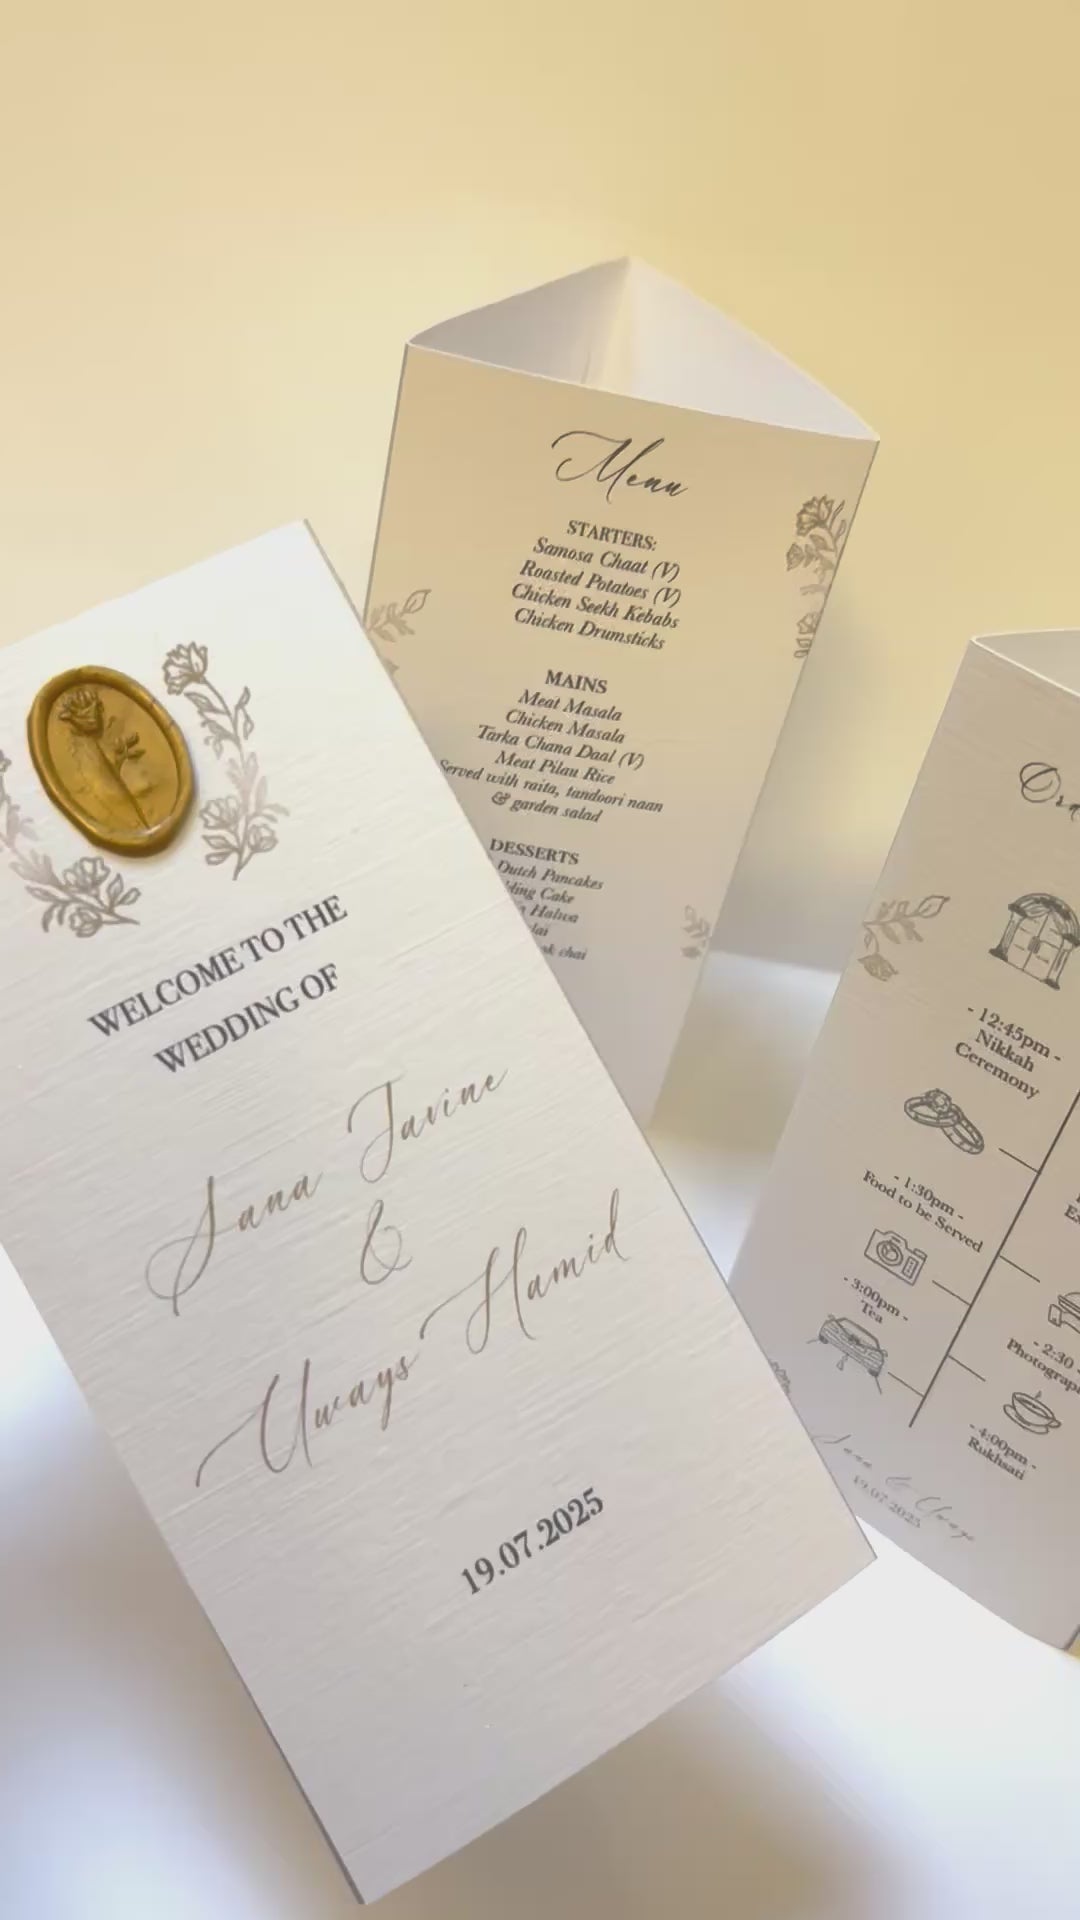 WELCOME TO THE
WEDDING OF
Sana Javine
&
Uways Hamid
19.07.2025
Menu
STARTERS:
Samosa Chaat (V)
Roasted Potatoes (V)
Chicken Seekh Kebabs
Chicken Drumsticks
MAINS
Meat Masala
Chicken Masala
Tarka Chana Daal (V)
Meat Pilau Rice
Served with raita, tandoori naan
& garden salad
DESSERTS
Dutch Pancakes
Cake
Halwa
chai
- 12:45pm -
Nikkah
Ceremony
- 1:30pm -
Food to be Served
- 2:30 -
- 3:00pm -
Tea
- 4:00pm -
Rukhsati
Sana & Uways
19.07.2025